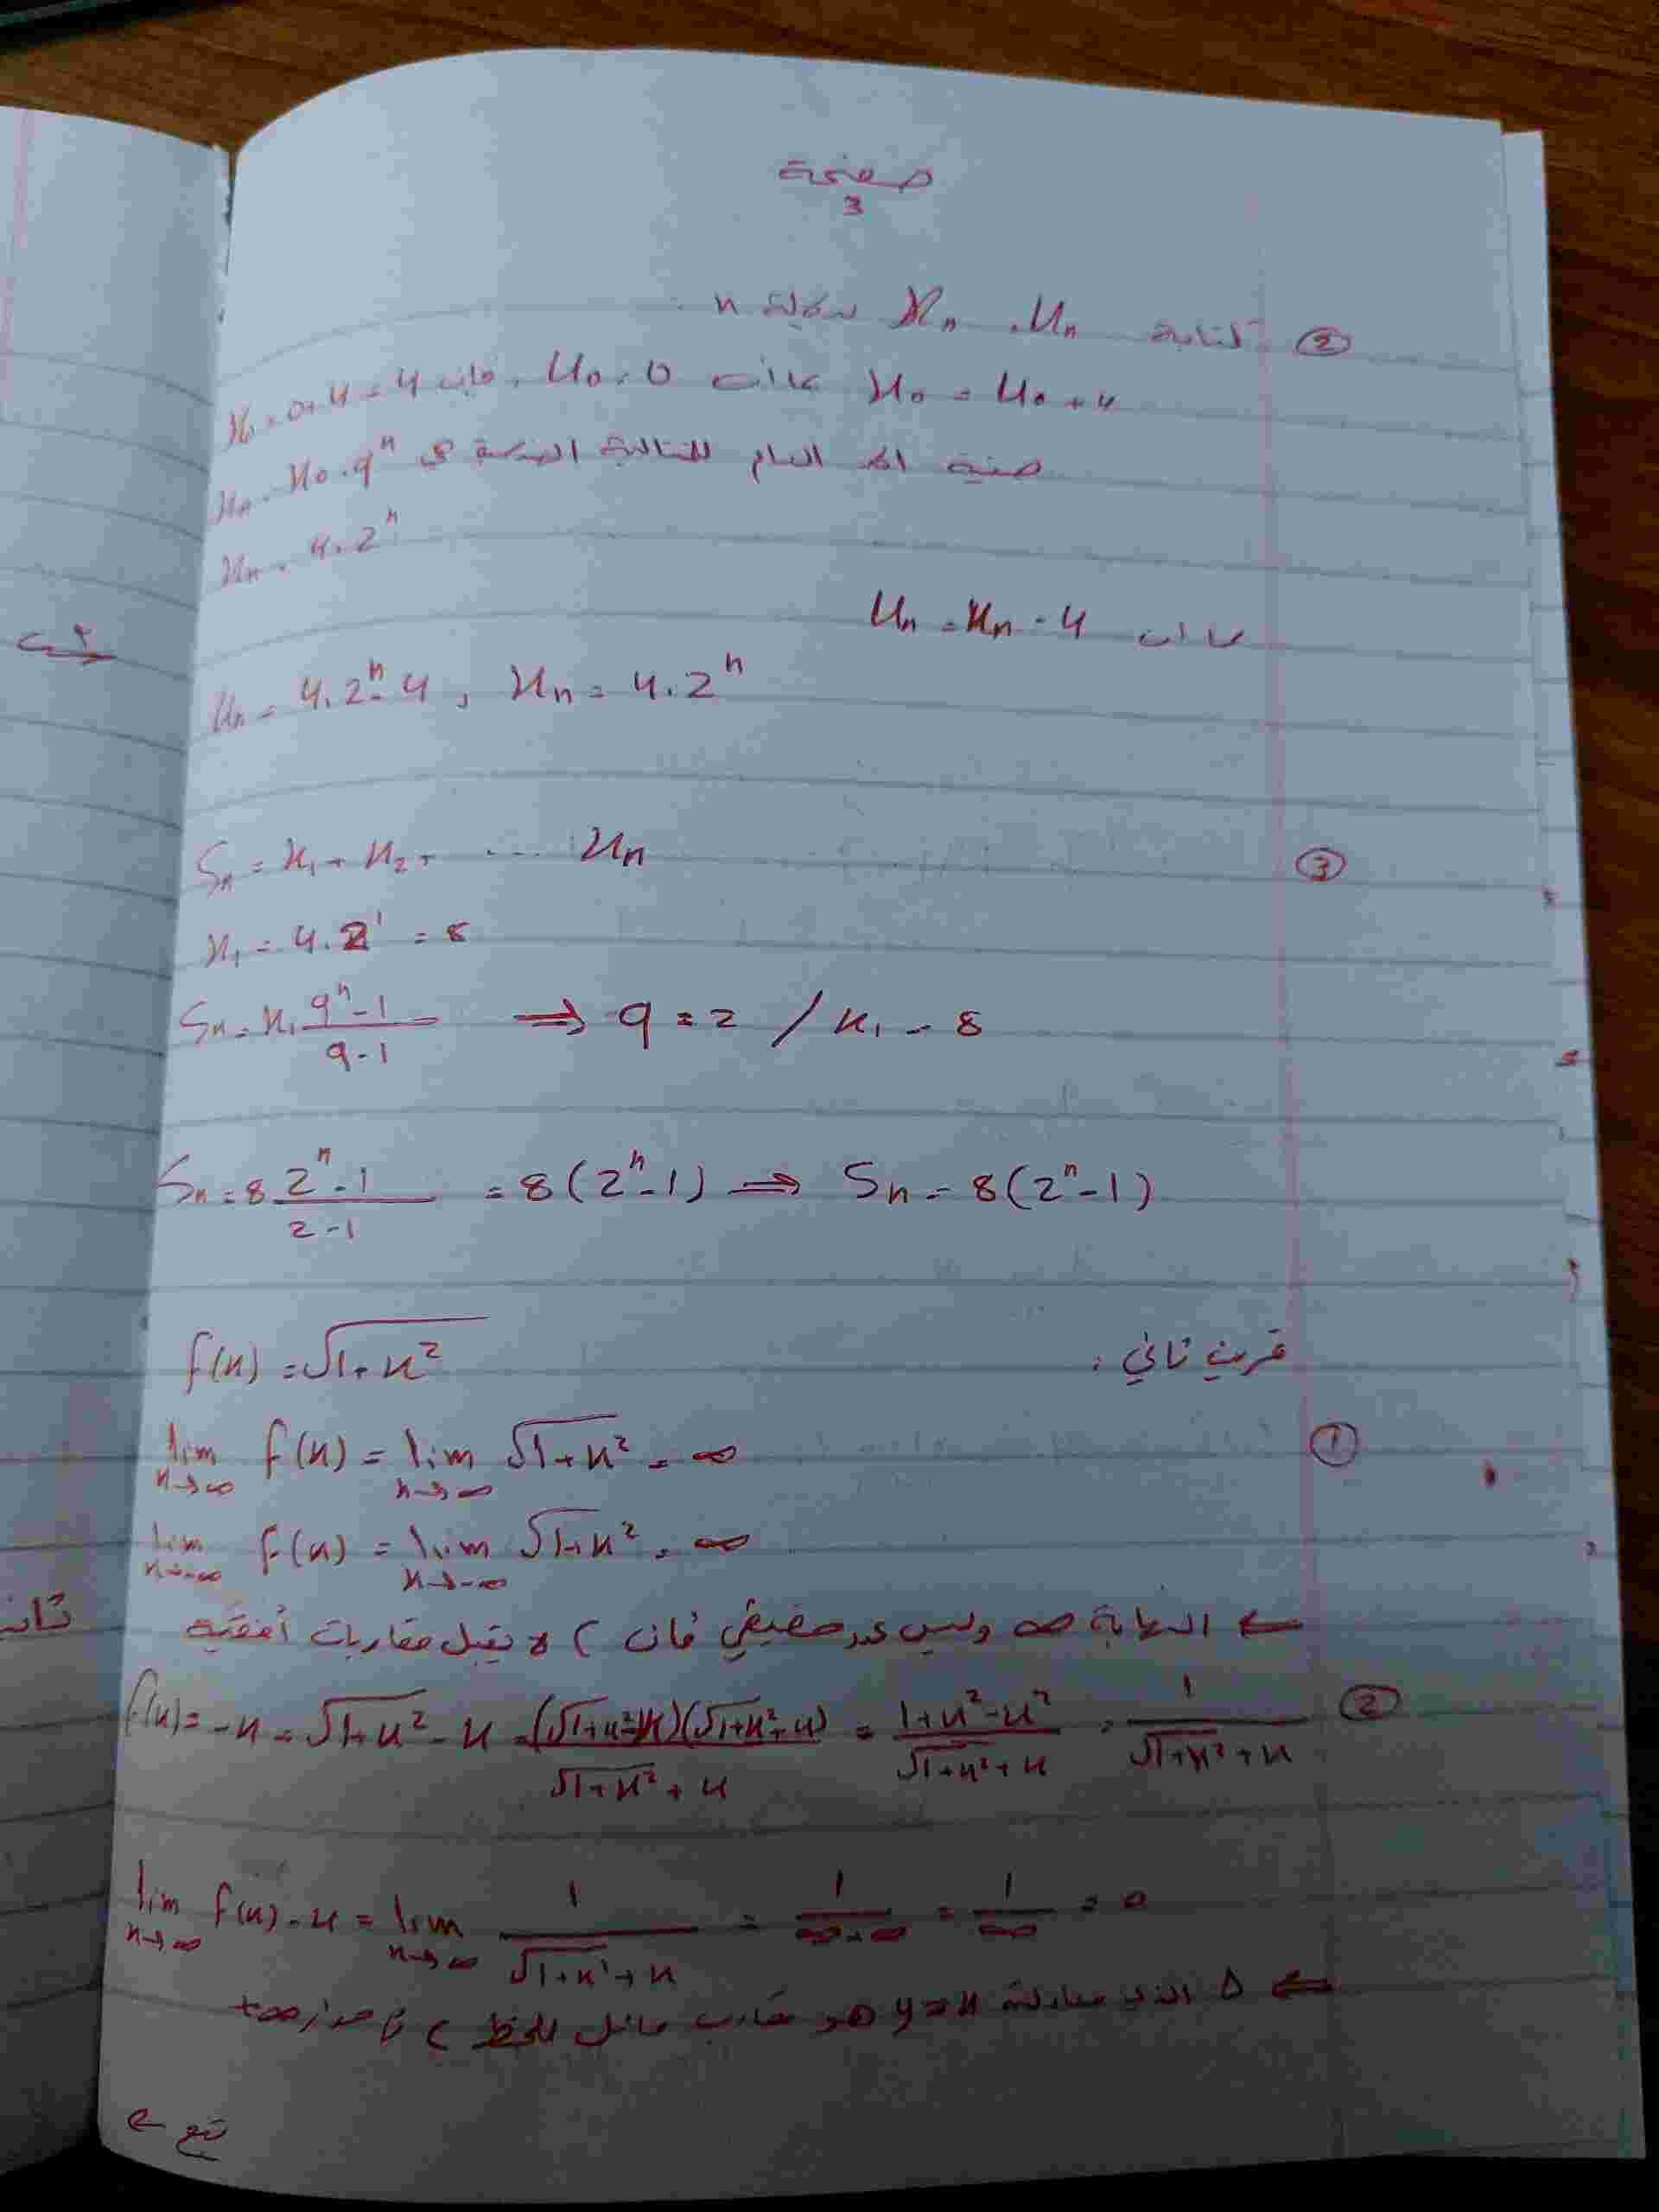 صفحة
3
② كتابة Xn , Un بدلالة n
X0 = U0 + 4 بما أن U0 = 0 , فإن X0 = 0 + 4 = 4
صيغة الحد العام للمتتالية الهندسية هي Xn = X0 . q^n
Xn = 4 . 2^n
بما أن Un = Xn - 4
Un = 4 . 2^n - 4 , Xn = 4 . 2^n
③ Sn = X1 + X2 + .... Xn
X1 = 4 . 2^1 = 8
Sn = X1 (q^n - 1)/(q - 1) ⇒ q = 2 / X1 = 8
Sn = 8 (2^n - 1)/(2 - 1) = 8 (2^n - 1) ⇒ Sn = 8 (2^n - 1)
تمرين ثاني :
f(x) = √(1 + x²)
① lim x→∞ f(x) = lim x→∞ √(1 + x²) = ∞
lim x→-∞ f(x) = lim x→-∞ √(1 + x²) = ∞
⇐ النهاية ∞ وليس عدد حقيقي فإن C لا يقبل مقاربات أفقية
② f(x) = -x = √(1 + x²) - x = (√(1 + x²) - x)(√(1 + x²) + x)/(√(1 + x²) + x) = (1 + x² - x²)/(√(1 + x²) + x) = 1/(√(1 + x²) + x)
lim x→∞ f(x) - x = lim x→∞ 1/(√(1 + x²) + x) = 1/(∞ + ∞) = 1/∞ = 0
⇐ Δ الذي معادلته y = x هو مقارب مائل للخط C في جوار +∞
تبع ←